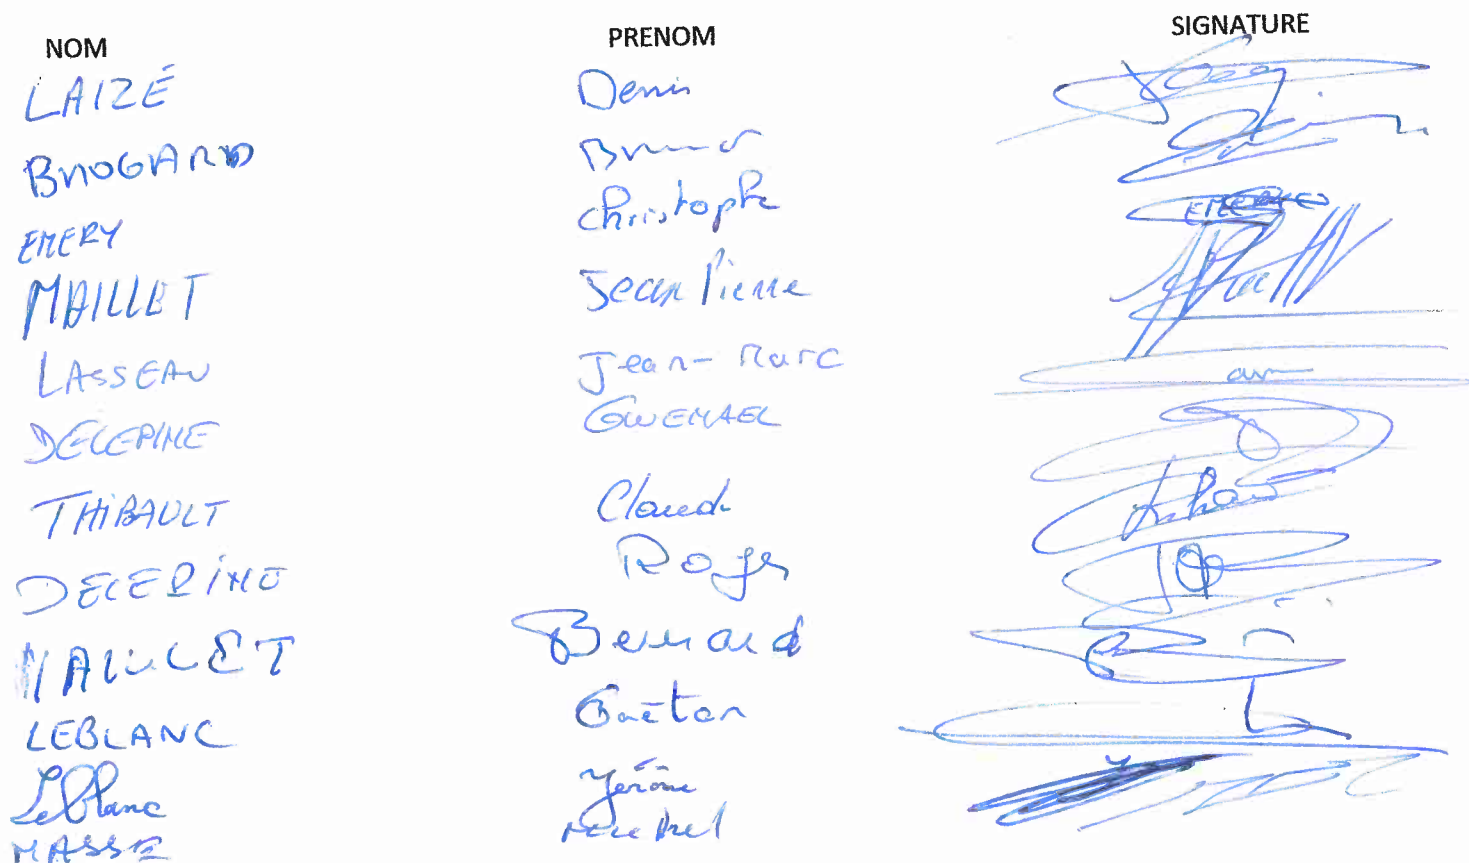 NOM PRENOM SIGNATURE
LAIZÉ Denis
BROGARD Bruno
EMERY Christophe EMERY
MAILLET Jean Pierre
LASSEAU Jean-Marc
DELEPINE GWENAEL
THIBAULT Claude
DELEPINE Roger
MAILLET Bernard
LEBLANC Gaëtan
Leblanc Jérôme
MASSE Michel